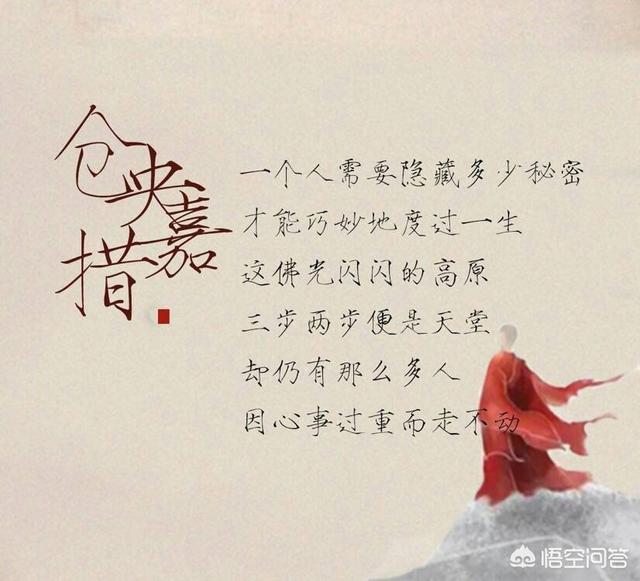 仓央嘉措
一个人需要隐藏多少秘密
才能巧妙地度过一生
这佛光闪闪的高原
三步两步便是天堂
却仍有那么多人
因心事过重而走不动
悟空问答